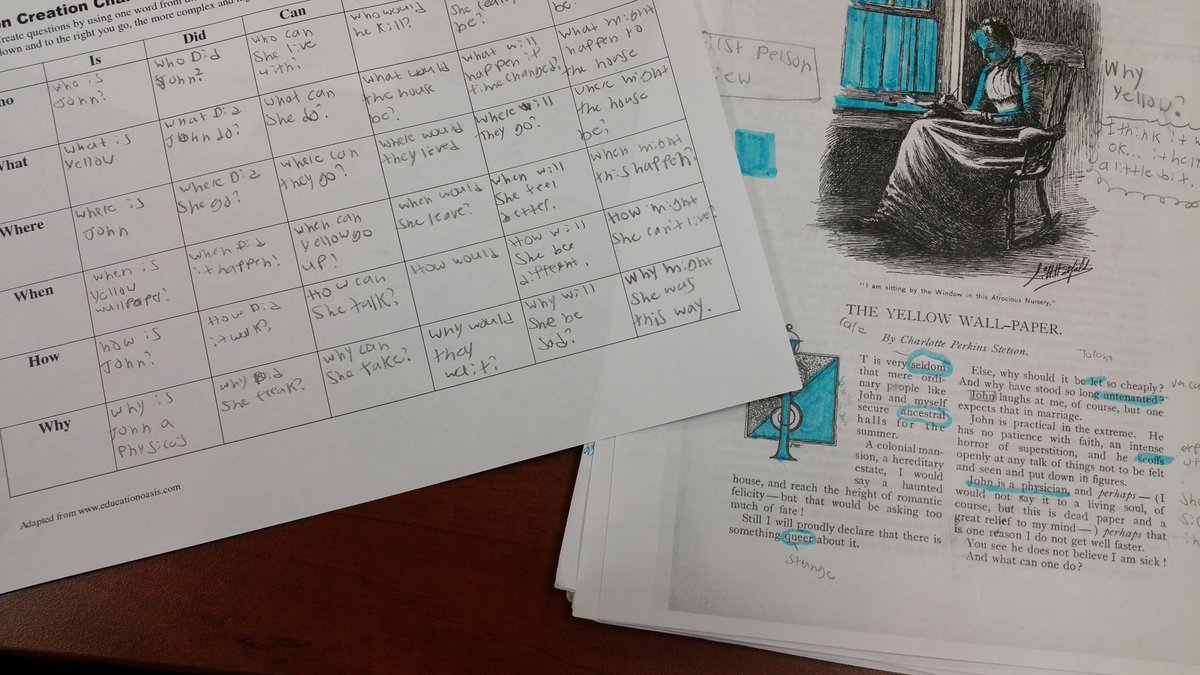 on Creation Cha
create questions by using one word from th
down and to the right you go, the more complex and
Is
Did
Can
who is
John?
who Did
John?
who can
She live
with?
who would
he kill?
be?
be?
What
what is
yellow
what Did
John do?
what can
She do?
what would
the house
be?
what will
happen if
time changed?
what might
happen to
the house
Where
where is
John
where Did
She go?
where can
they go?
where would
they lived
where will
they go?
where might
the house
be?
When
when is
yellow
wallpaper?
when Did
it happen?
when can
yellow go
up?
when would
She leave?
when will
She feel
better.
when might
this happen?
How
how is
John?
How Did
it work?
How can
She talk?
How would
How will
She be
different.
How might
She can't live?
Why
why is
John a
Why Did
She freak?
why can
She take?
why would
they
wait?
why will
She be
Sad?
why might
She was
this way.
Adapted from www.educationoasis.com
irst Person
iew
Why
Yellow?
I think it
ok... it
a little bit.
"I am sitting by the Window in this Atrocious Nursery."
THE YELLOW WALL-PAPER.
rare
By Charlotte Perkins Stetson.
T is very seldom
that mere ordi-
nary people like
John and myself
secure ancestral
halls for the
summer.
A colonial man-
sion, a hereditary
estate, I would
say a haunted
house, and reach the height of romantic
felicity—but that would be asking too
much of fate!
Still I will proudly declare that there is
something queer about it.
strange
Else, why should it be let so cheaply?
And why have stood so long untenanted?
John laughs at me, of course, but one
expects that in marriage.
John is practical in the extreme. He
has no patience with faith, an intense
horror of superstition, and he scoffs
openly at any talk of things not to be felt
and seen and put down in figures.
John is a physician, and perhaps—(I
would not say it to a living soul, of
course, but this is dead paper and a
great relief to my mind—) perhaps that
is one reason I do not get well faster.
You see he does not believe I am sick!
And what can one do?